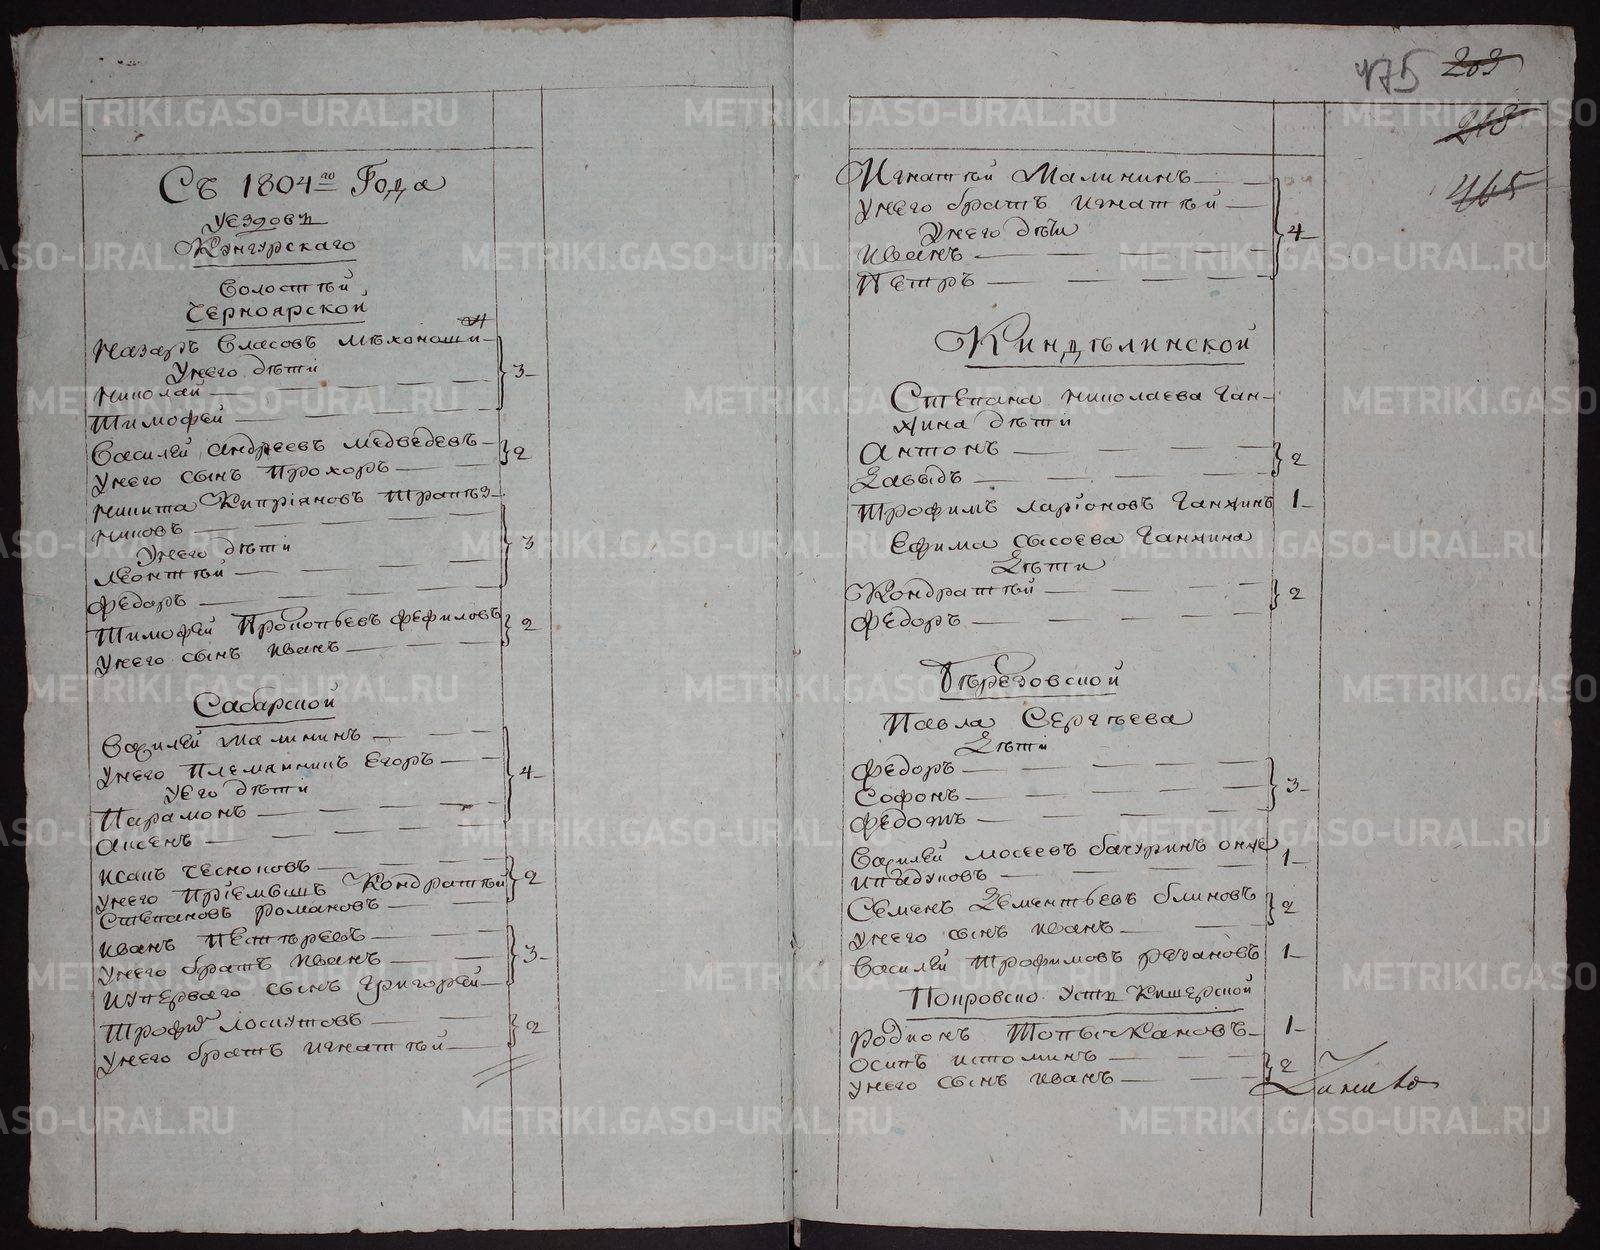 Съ 1804го Года
уездовъ
Кунгурскаго
волостей
Черноярской
Назаръ Власовъ Мѣхоноши-
нъ
Унего дѣти
Николай
Тимофей
Василей Андреевъ медведевъ
Унего сынъ Прохоръ
3
2
Никита Кипріяновъ Трапѣз-
никовъ
Унего дѣти
Леонтей
Федоръ
3
Тимофей Прокопьевъ Фефиловъ
Унего сынъ Иванъ
2
Сабарской
Василей Малининъ
Унего Племянникъ Егоръ
У Его дѣти
Парамонъ
Аксенъ
4
Исакъ Чесноковъ
Унего Пріемышъ Кондратей
Степановъ Романовъ
2
Иванъ Пестеревъ
Унего братъ Иванъ
И Уперваго сынъ Григорей
3
Трофимъ Лоскутовъ
Унего братъ Игнатей
2
475 203
218
465
Игнатей Малининъ
Унего братъ Игнатей
Унего дѣти
Иванъ
Петръ
4
Киндѣлинской
Степана Николаева Ган-
жина дѣти
Антонъ
Давыдъ
2
Трофимъ Ларіоновъ Ганжинъ 1
Ефима Сысоева Ганжина
Дѣти
Кондратей
Федоръ
2
Бѣрезовской
Павла Сергѣева
Дѣти
Федоръ
Софонъ
Федотъ
3
Василей Мосеевъ Бачуринъ онже
1
Семенъ Дементьевъ Блиновъ
Унего сынъ Иванъ
2
Василей Трофимовъ Речановъ 1
Покровско Усть Кишерской
Родионъ Топычкановъ 1
Осипъ Истоминъ
Унего сынъ Иванъ
2
METRIKI.GASO-URAL.RU